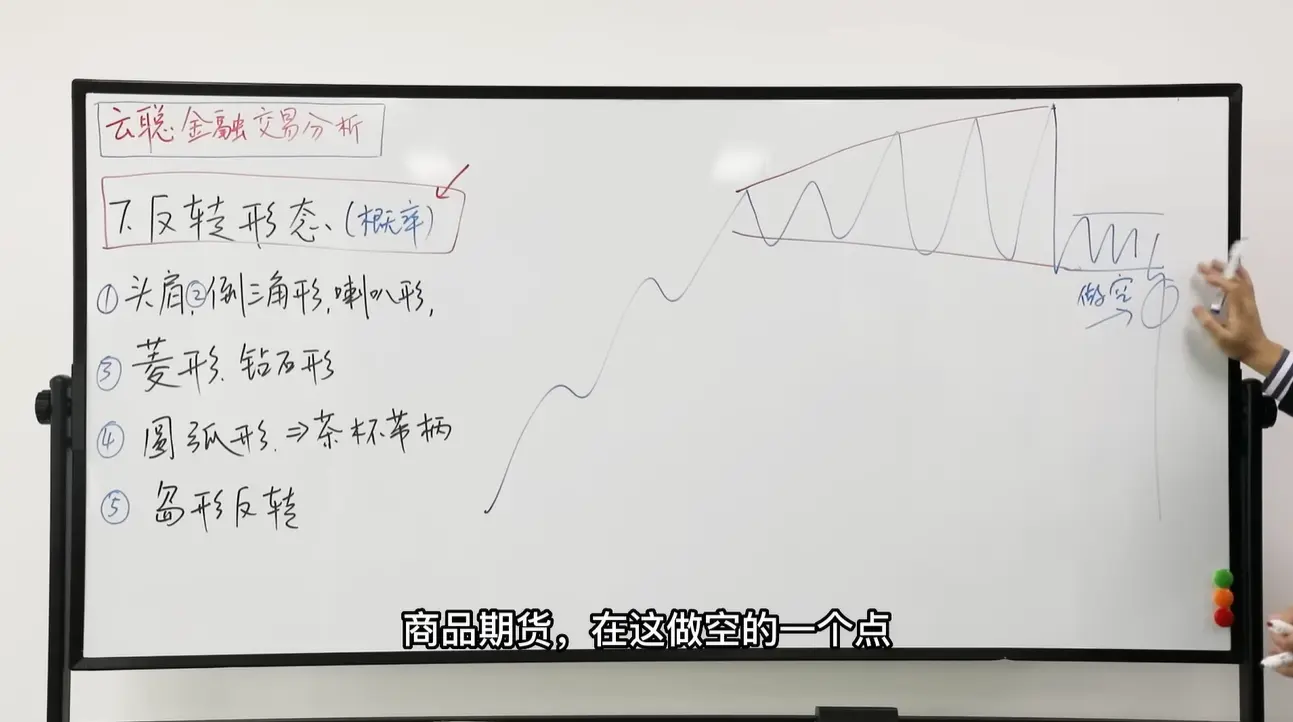 云聪金融交易分析
7.反转形态、(概率)
①头肩,②倒三角形,喇叭形,
③菱形、钻石形
④圆弧形.⇒茶杯带柄
⑤岛形反转
做空
商品期货，在这做空的一个点